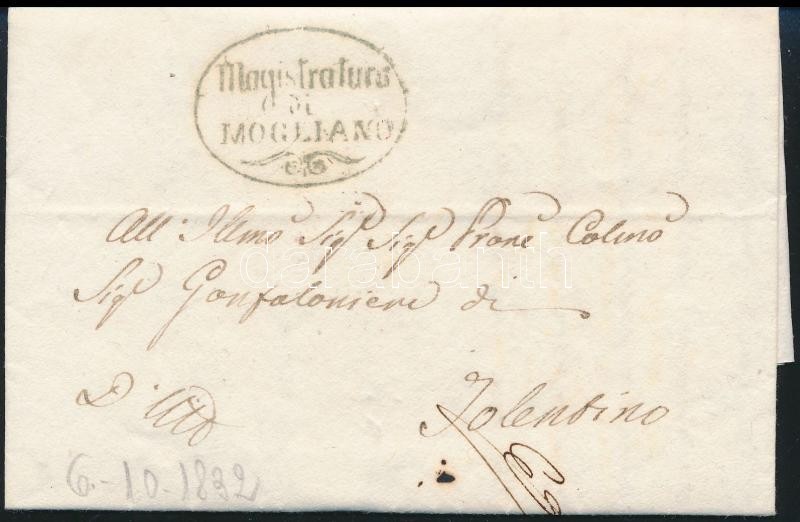 Magistratura
di
MOGLIANO
All: Illmo Sigr Sigr Prone Colmo
Sigr Gonfaloniere di
D'Uff
Tolentino
6.-10-1832
darabanth